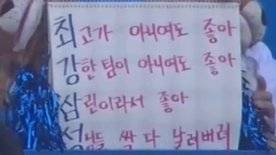 최고가 아니여도 좋아
강한팀이 아니여도 좋아
삼린이라서 좋아
성나들 싹 다 날려버려